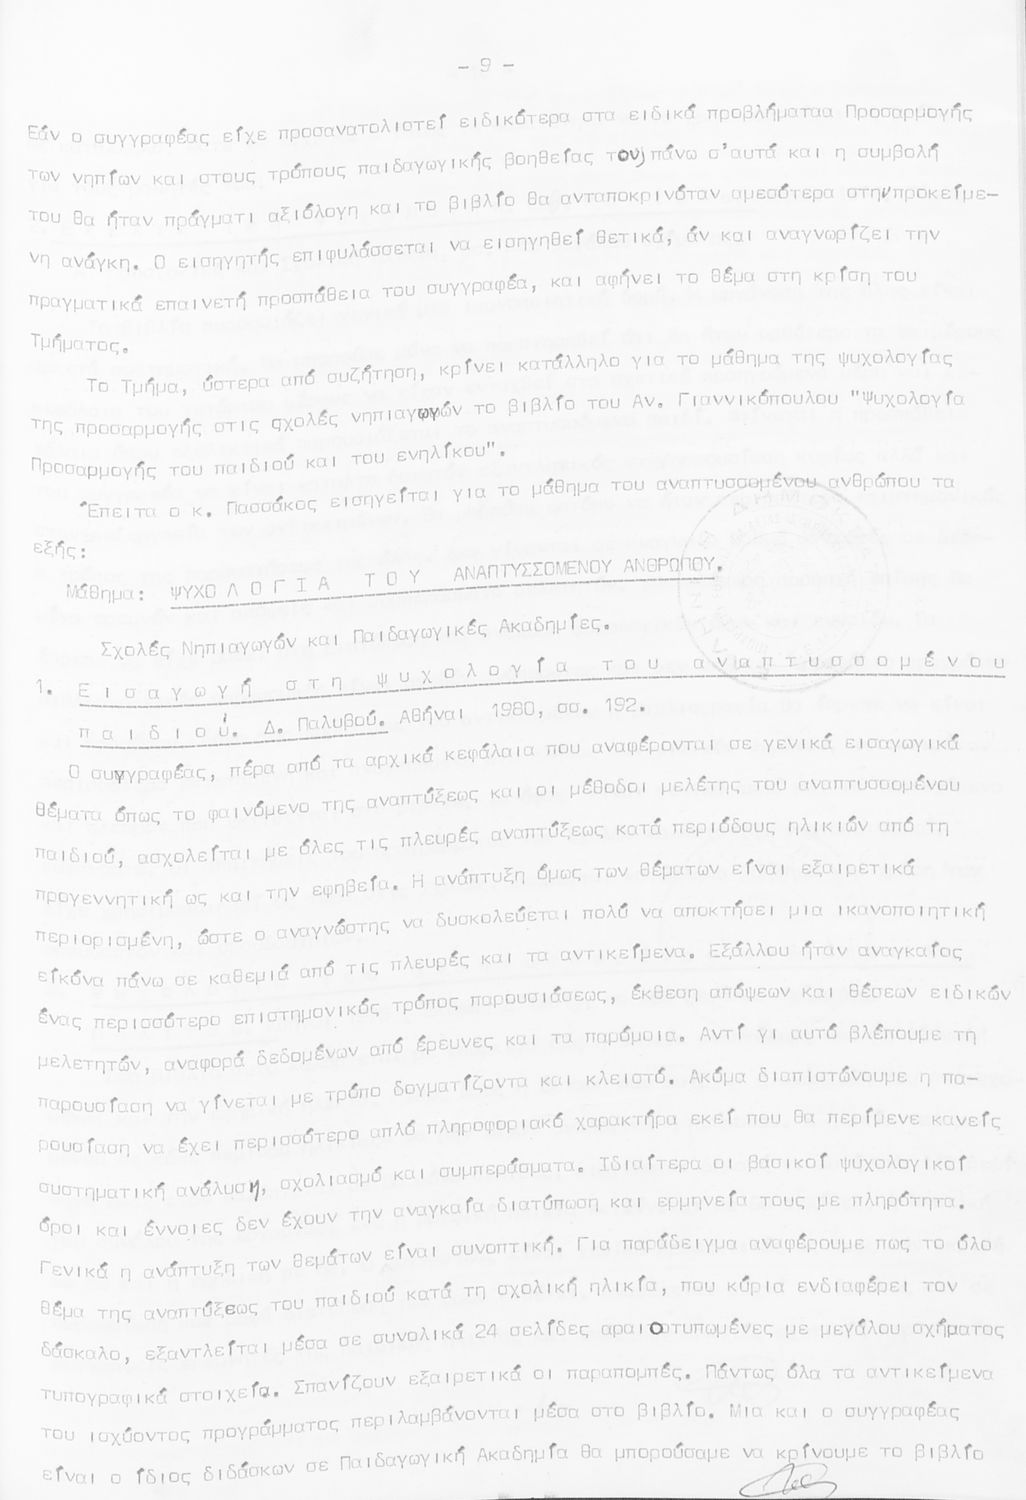 - 9 -
Εάν ο συγγραφέας είχε προσανατολιστεί ειδικότερα στα ειδικά προβλήματαα Προσαρμογής
των νηπίων και στους τρόπους παιδαγωγικής βοηθείας τους πάνω σ'αυτά και η συμβολή
του θα ήταν πράγματι αξιόλογη και το βιβλίο θα ανταποκρινόταν αμεσότερα στην προκείμε-
νη ανάγκη. Ο εισηγητής επιφυλάσσεται να εισηγηθεί θετικά, άν και αναγνωρίζει την
πραγματικά επαινετή προσπάθεια του συγγραφέα, και αφήνει το θέμα στη κρίση του
Τμήματος.
Το Τμήμα, ύστερα από συζήτηση, κρίνει κατάλληλο για το μάθημα της ψυχολογίας
της προσαρμογής στις σχολές νηπιαγωγών το βιβλίο του Αν. Γιαννικόπουλου "Ψυχολογία
Προσαρμογής του παιδιού και του ενηλίκου".
Έπειτα ο κ. Πασσάκος εισηγείται για το μάθημα του αναπτυσσομένου ανθρώπου τα
εξής:
Μάθημα: ΨΥΧΟΛΟΓΙΑ ΤΟΥ ΑΝΑΠΤΥΣΣΟΜΕΝΟΥ ΑΝΘΡΩΠΟΥ.
Σχολές Νηπιαγωγών και Παιδαγωγικές Ακαδημίες.
1. Εισαγωγή στη ψυχολογία του αναπτυσσομένου
παιδιού. Δ. Παλυβού. Αθήναι 1980, σσ. 192.
Ο συγγραφέας, πέρα από τα αρχικά κεφάλαια που αναφέρονται σε γενικά εισαγωγικά
θέματα όπως το φαινόμενο της αναπτύξεως και οι μέθοδοι μελέτης του αναπτυσσομένου
παιδιού, ασχολείται με όλες τις πλευρές αναπτύξεως κατά περιόδους ηλικιών από τη
προγεννητική ως και την εφηβεία. Η ανάπτυξη όμως των θέματων είναι εξαιρετικά
περιορισμένη, ώστε ο αναγνώστης να δυσκολεύεται πολύ να αποκτήσει μια ικανοποιητική
είκόνα πάνω σε καθεμιά από τις πλευρές και τα αντικείμενα. Εξάλλου ήταν αναγκαίος
ένας περισσότερο επιστημονικός τρόπος παρουσιάσεως, έκθεση απόψεων και θέσεων ειδικών
μελετητών, αναφορά δεδομένων από έρευνες και τα παρόμοια. Αντί γι αυτό βλέπουμε τη
παρουσίαση να γίνεται με τρόπο δογματίζοντα και κλειστό. Ακόμα διαπιστώνουμε η πα-
ρουσίαση να έχει περισσότερο απλό πληροφοριακό χαρακτήρα εκεί που θα περίμενε κανείς
συστηματική ανάλυση, σχολιασμό και συμπεράσματα. Ιδιαίτερα οι βασικοί ψυχολογικοί
όροι και έννοιες δεν έχουν την αναγκαία διατύπωση και ερμηνεία τους με πληρότητα.
Γενικά η ανάπτυξη των θεμάτων είναι συνοπτική. Για παράδειγμα αναφέρουμε πως το όλο
θέμα της αναπτύξεως του παιδιού κατά τη σχολική ηλικία, που κύρια ενδιαφέρει τον
δάσκαλο, εξαντλείται μέσα σε συνολικά 24 σελίδες αραιοτυπωμένες με μεγάλου σχήματος
τυπογραφικά στοιχεία. Σπανίζουν εξαιρετικά οι παραπομπές. Πάντως όλα τα αντικείμενα
του ισχύοντος προγράμματος περιλαμβάνονται μέσα στο βιβλίο. Μια και ο συγγραφέας
είναι ο ίδιος διδάσκων σε Παιδαγωγική Ακαδημία θα μπορούσαμε να κρίνουμε το βιβλίο